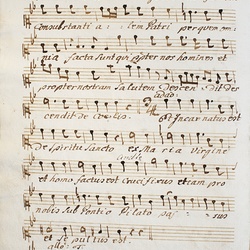 Consubstanti a lem Patri per quem om
nia facta sunt qui propter nos homines et
propter nostram salutem Descen dit Des
cendit de Coelis et Incarnatus est
de Spiritu Sancto ex Maria Virgine
et homo factus est Crucifixus etiam pro
nobis sub Pontio Pilato pas sus
et sepultus est